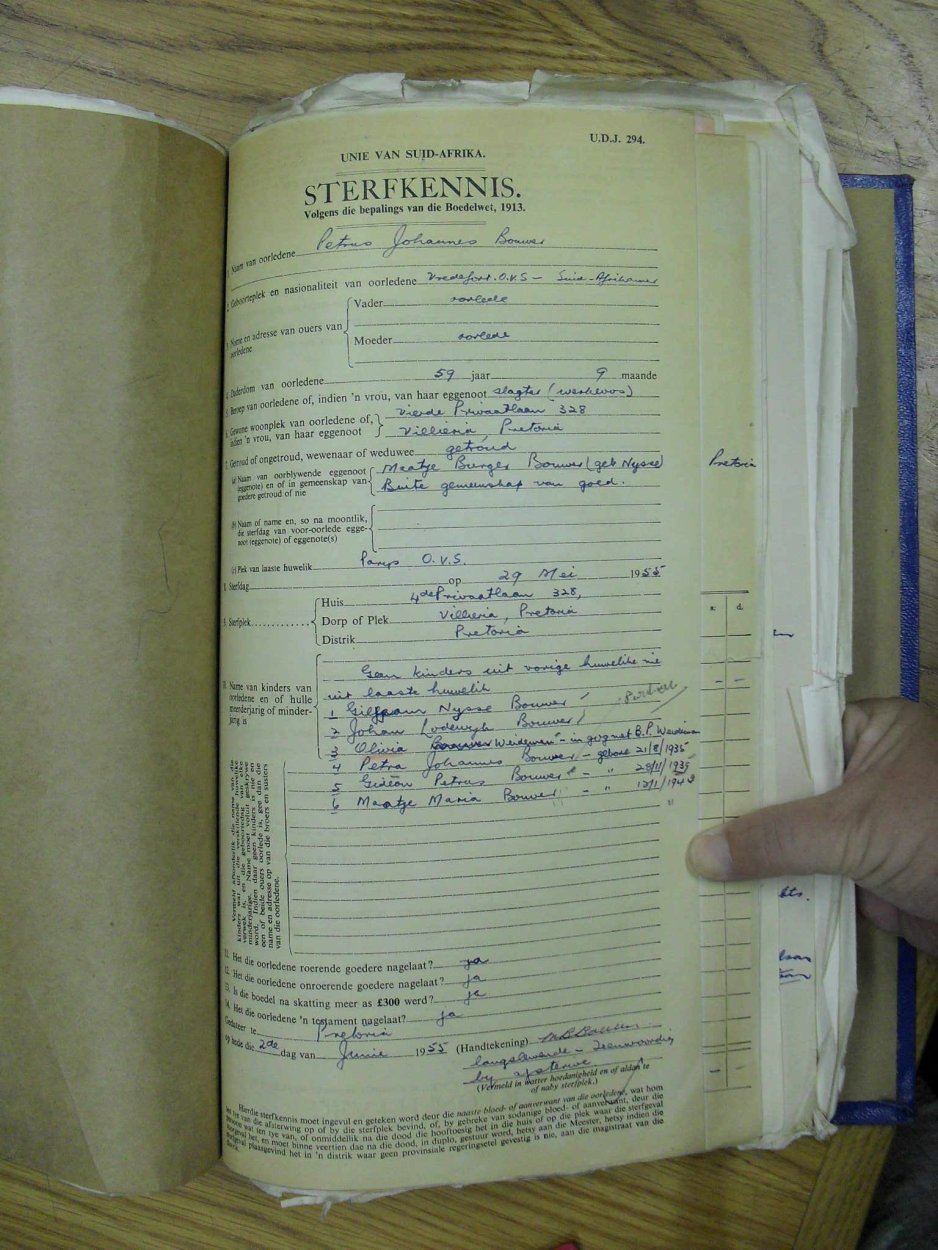 U.D.J. 294.
UNIE VAN SUID-AFRIKA.
STERFKENNIS.
Volgens die bepalings van die Boedelwet, 1913.
1. Naam van oorledene Petrus Johannes Bouwer
2. Geboorteplek en nasionaliteit van oorledene Vredefort. O.V.S - Suid-Afrikaner
3. Name en adresse van ouers van oorledene
Vader oorlede
Moeder oorlede
4. Ouderdom van oorledene 59 jaar 9 maande
5. Beroep van oorledene of, indien 'n vrou, van haar eggenoot slagter (werkloos)
6. Gewone woonplek van oorledene of, indien 'n vrou, van haar eggenoot
Vierde Privaatlaan 328
Villieria, Pretoria
7. Getroud of ongetroud, wewenaar of weduwee getroud
(a) Naam van oorblywende eggenoot (eggenote) en of in gemeenskap van goedere getroud of nie
Maatje Burger Bouwer (geb Nysse)
Buite gemeenskap van goed.
Pretoria
(b) Naam of name en, so na moontlik, die sterfdag van voor-oorlede eggenoot (eggenote) of eggenote(s)
(c) Plek van laaste huwelik Parys O.V.S.
8. Sterfdag op 29 Mei 1955
9. Sterfplek
Huis 4de Privaatlaan 328,
Dorp of Plek Villieria, Pretoria
Distrik Pretoria
10. Name van kinders van oorledene en of hulle meerderjarig of minderjarig is
Geen kinders uit vorige huwelike nie
uit laaste huwelik
1 Nysse Bouwer
2 Johan Lodewyh Bouwer
3 Olivia - in g. met B.P.
4 Petra Johannes Bouwer - gebore 21/8/1935
5 Gideon Petrus Bouwer - " 28/11/1939
6 Maatje Maria Bouwer - " 12/1/1943
Vermeld afsonderlik die name van die kinders wat uit die verskillende huwelike verwek is, en die geboortedag van elke minderjarige. Name moet voluit geskrywe word. Indien daar geen kinders is nie en een of beide ouers oorlede is, gee dan die name en adresse op van die broers en susters van die oorledene.
11. Het die oorledene roerende goedere nagelaat? ja
12. Het die oorledene onroerende goedere nagelaat? ja
13. Is die boedel na skatting meer as £300 werd? ja
14. Het die oorledene 'n testament nagelaat? ja
Gedateer te Pretoria
op hede die 2de dag van Junie 1955 (Handtekening) M.B. Bouwer
langslewende - Teenwoordig
by afsterwe
(Vermeld in watter hoedanigheid en of aldan te of naby sterfplek.)
Hierdie sterfkennis moet ingevul en geteken word deur die naaste bloed- of aanverwant van die oorledene, wat hom
ten tye van die afsterwing op of by die sterfplek bevind, of, by gebreke van sodanige bloed- of aanverwant, deur die
persoon wat ten tye van, of onmiddellik na die dood die hooftoesig het in die huis of op die plek waar die sterfgeval
voorgeval het, en moet binne veertien dae na die dood, in duplo, gestuur word, hetsy aan die Meester, hetsy indien die
sterfgeval plaasgevind het in 'n distrik waar geen provinsiale regeringsetel gevestig is nie, aan die magistraat van die
s. d.